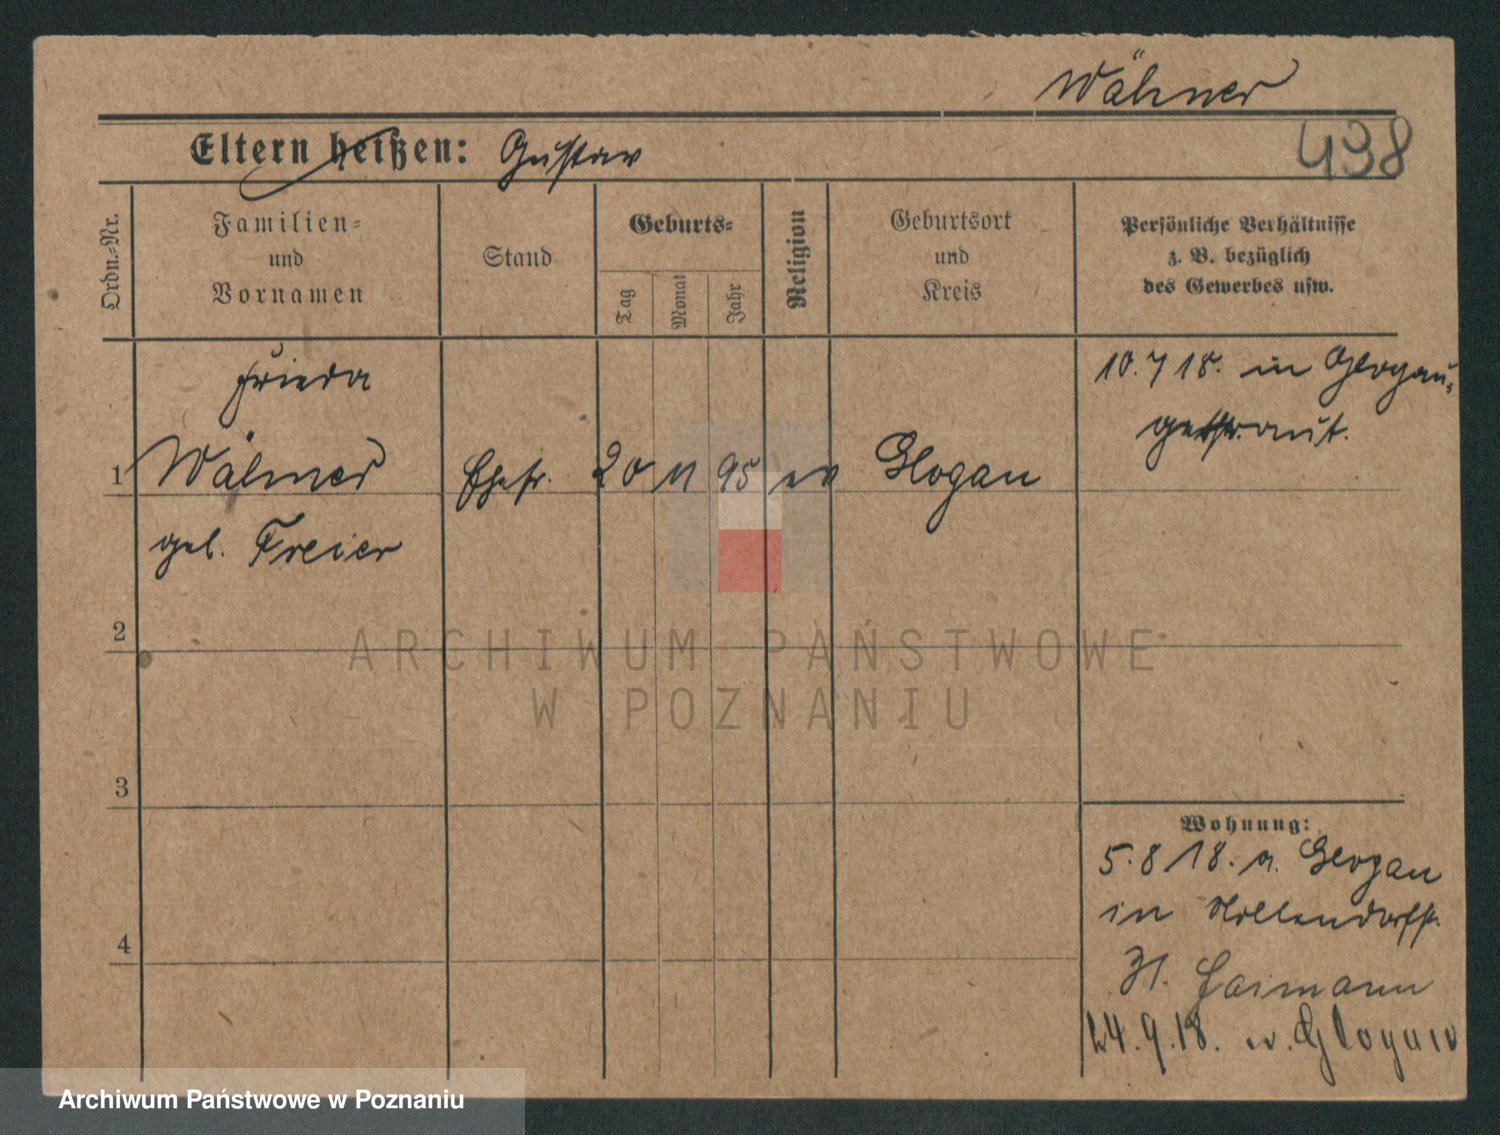 Wähner
438
Eltern heißen: Gustav
Ordn.-Nr.
Familien-
und
Vornamen
Stand
Geburts-
Tag
Monat
Jahr
Religion
Geburtsort
und
Kreis
Persönliche Verhältnisse
z. B. bezüglich
des Gewerbes usw.
Frieda
1 Wähner Ehefr. 20 11 95 ev Glogau
geb. Freier
10.7 18. in Glogau
getraut.
2
3
4
Wohnung:
5.8 18. a. Glogau
in Nollendorfstr.
31. Haimann
24.9.18. n. Glogau
ARCHIWUM PAŃSTWOWE
W POZNANIU
Archiwum Państwowe w Poznaniu